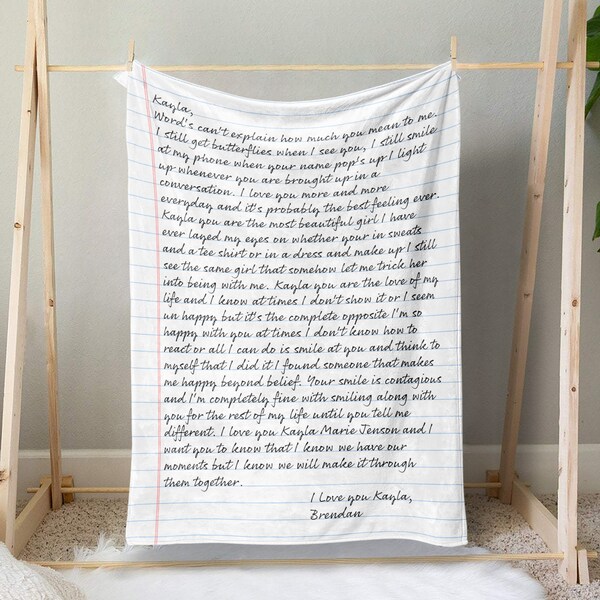 Kayla,
Word's can't explain how much you mean to me.
I still get butterflies when I see you, I still smile
at my phone when your name pop's up I light
up whenever you are brought up in a
conversation. I love you more and more
everyday and it's probably the best feeling ever.
Kayla you are the most beautiful girl I have
ever layed my eyes on whether your in sweats
and a tee shirt or in a dress and make up I still
see the same girl that somehow let me trick her
into being with me. Kayla you are the love of my
life and I know at times I don't show it or I seem
un happy but it's the complete opposite I'm so
happy with you at times I don't know how to
react or all I can do is smile at you and think to
myself that I did it I found someone that makes
me happy beyond belief. Your smile is contagious
and I'm completely fine with smiling along with
you for the rest of my life until you tell me
different. I love you Kayla Marie Jenson and I
want you to know that I know we have our
moments but I know we will make it through
them together.
I Love you Kayla,
Brendan